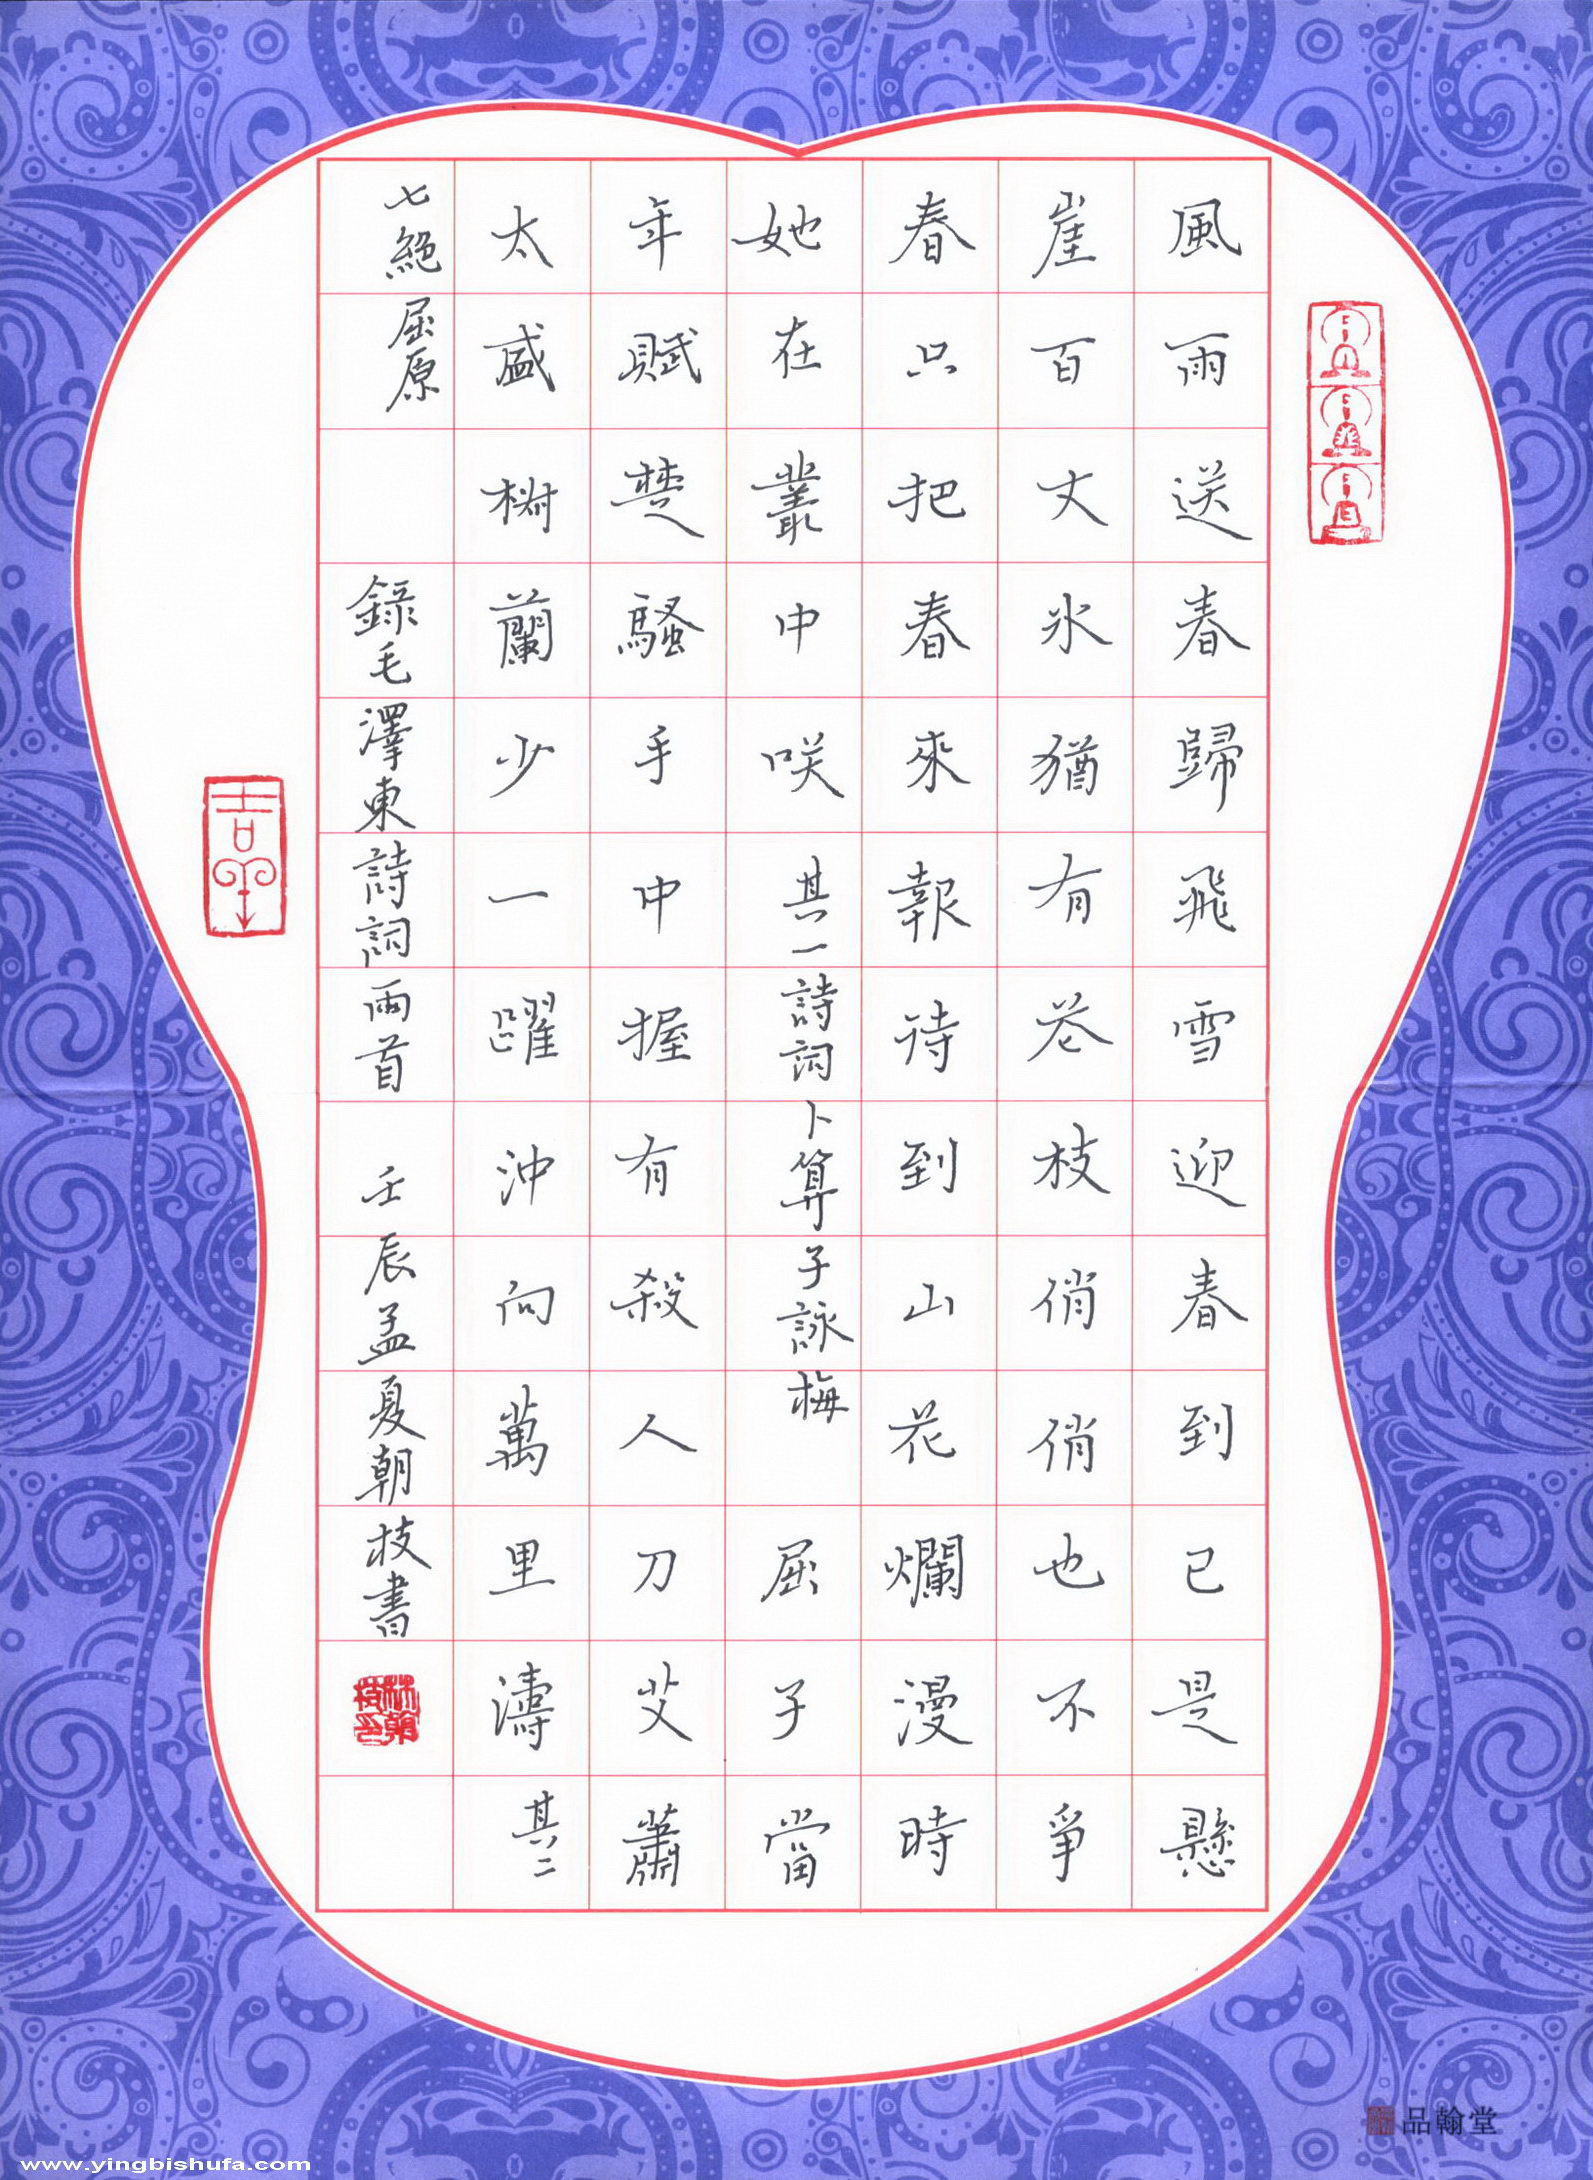 風雨送春歸飛雪迎春到已是懸
崖百丈冰猶有花枝俏俏也不爭
春只把春來報待到山花爛漫時
她在叢中咲其一詩詞卜算子詠梅屈子當
年賦楚騷手中握有殺人刀艾蕭
太盛椒蘭少一躍沖向萬里濤其二
七絕屈原 錄毛澤東詩詞兩首 壬辰孟夏朝枝書
品翰堂
www.yingbishufa.com